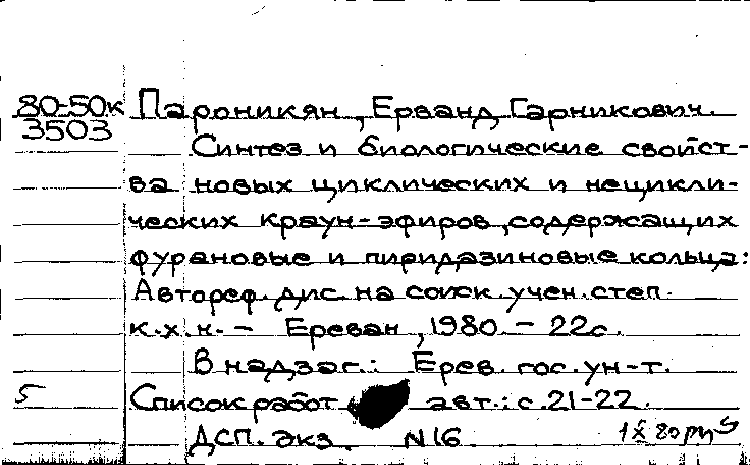 80-50к Пароникян, Ерванд Гарникович.
3503
Синтез и биологические свойст-
ва новых циклических и нецикли-
ческих краун-эфиров, содержащих
фурановые и пиридазиновые кольца:
Автореф. дис. на соиск. учен. степ.
к.х.н. - Ереван, 1980. - 22с.
В надзаг.: Ерев. гос. ун-т.
5 Список работ авт.: с. 21-22.
ДСП. экз. N 16